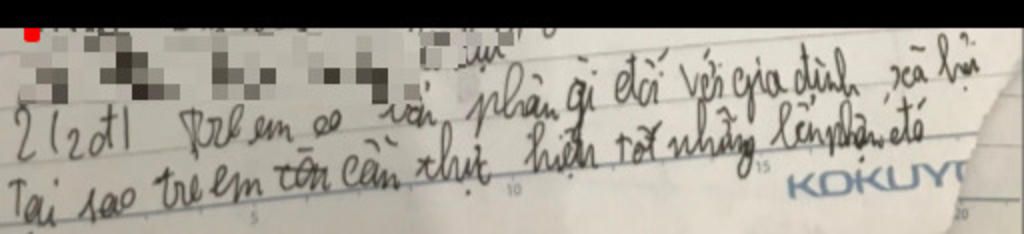 2 (2đ) Trẻ em có bổn phận gì đối với gia đình, xã hội
Tại sao trẻ em cần thực hiện tốt những bổn phận đó
5 10 15 20
KOKUYO